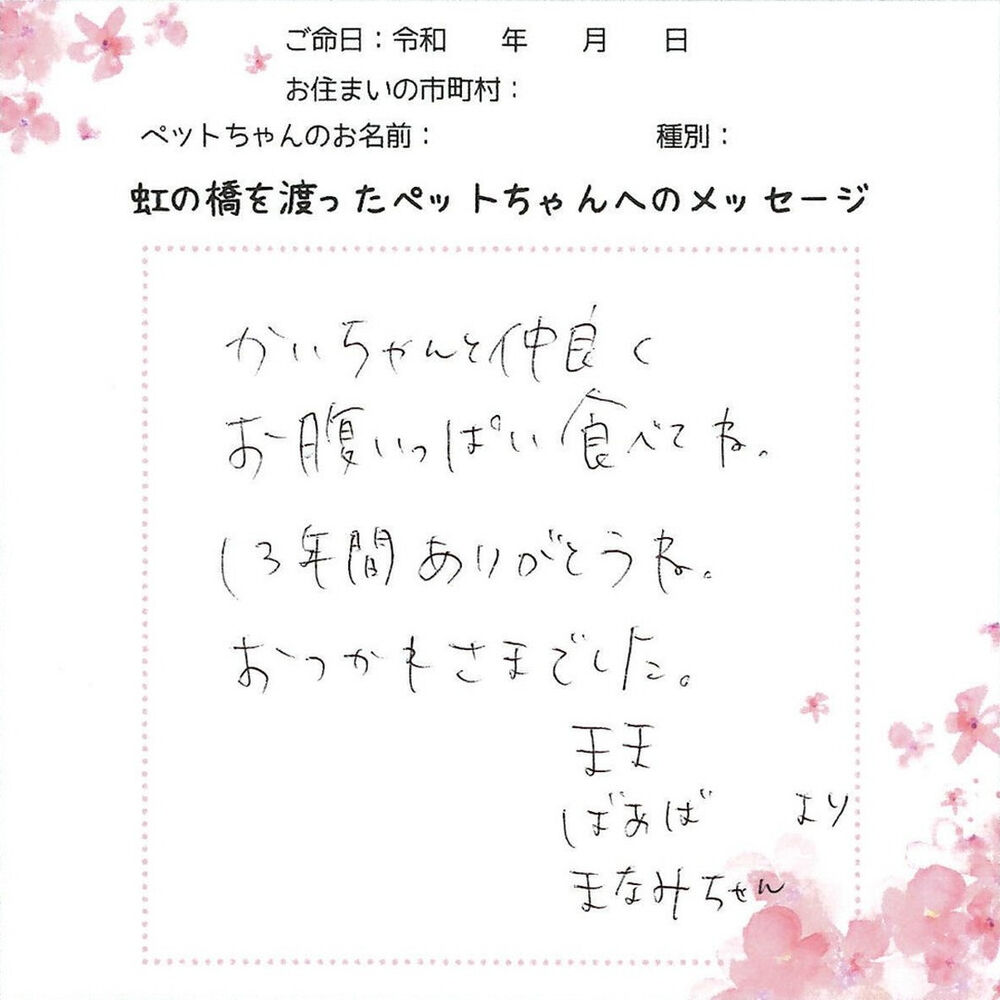 ご命日：令和　　年　　月　　日
お住まいの市町村：
ペットちゃんのお名前：　　　　　　　　種別：
虹の橋を渡ったペットちゃんへのメッセージ
かいちゃんと仲良く
お腹いっぱい食べてね。
13年間ありがとうね。
おつかれさまでした。
まま
ばあば　　より
まなみちゃん